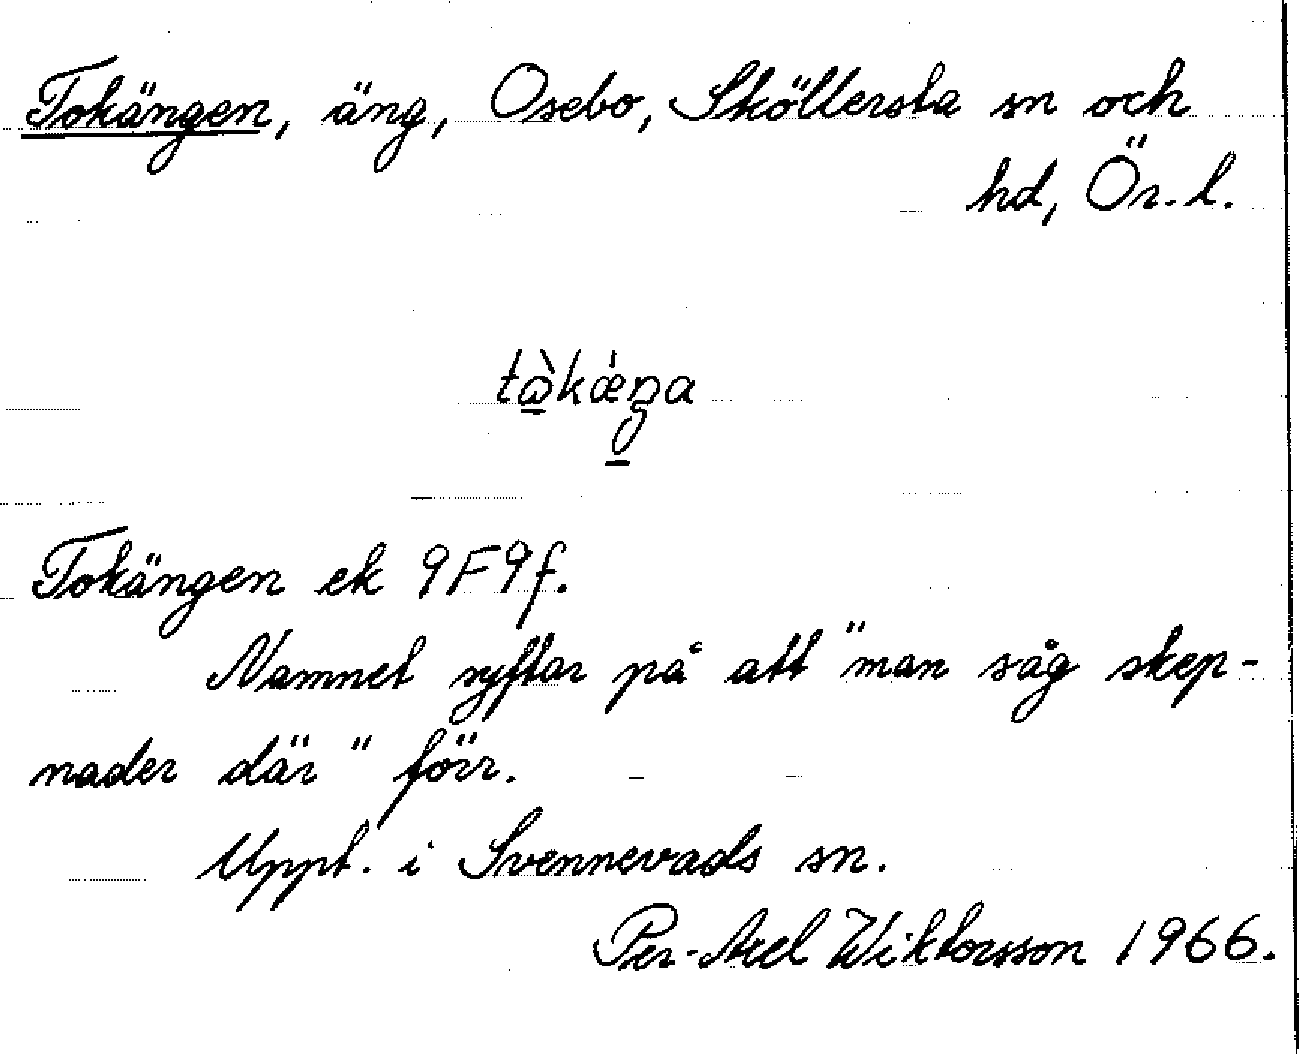 Tokängen, äng, Osebo, Sköllersta sn och
hd, Ör. l.
tὼ̱kǽŋa
Tokängen ek 9F9f.
Namnet syftar på att "man såg skep-
nader där" förr.
Uppt. i Svennevads sn.
Per-Axel Wiktorsson 1966.